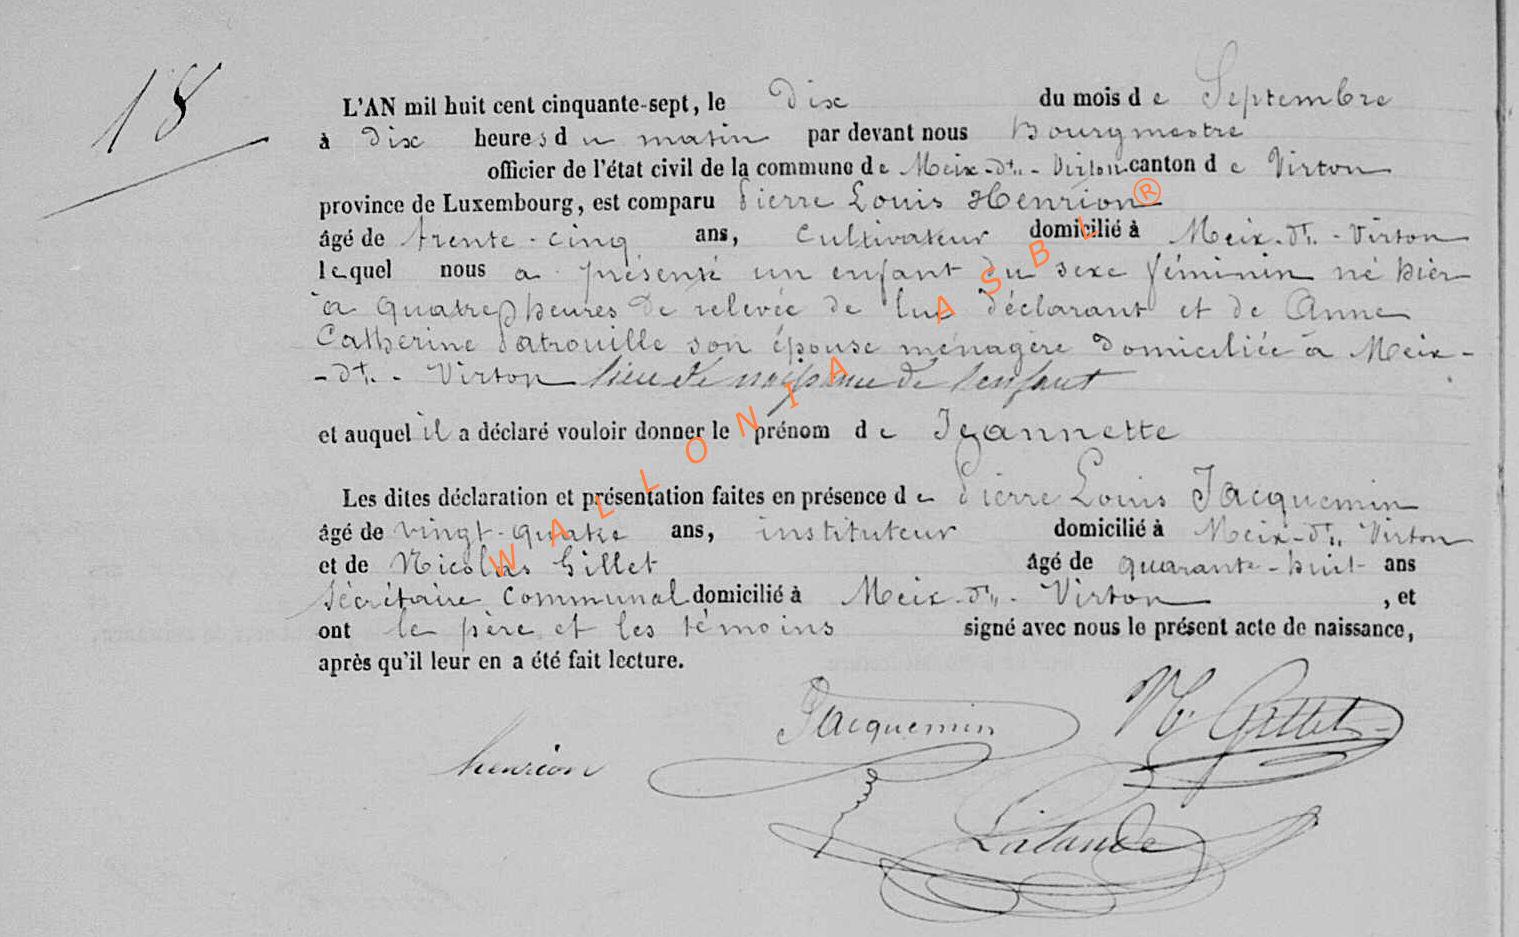 18
L'AN mil huit cent cinquante-sept, le Dix du mois de Septembre
à Dix heures du matin par devant nous Bourgmestre
officier de l'état civil de la commune de Meix-dt.-Virton canton de Virton
province de Luxembourg, est comparu Pierre Louis Henrion
âgé de trente-cinq ans, Cultivateur domicilié à Meix-dt.-Virton
lequel nous a présenté un enfant du sexe féminin né hier
à quatre heures de relevée de lui déclarant et de Anne
Catherine Patrouille son épouse ménagère domiciliée à Meix-
-dt.-Virton lieu de naissance de l'enfant
et auquel il a déclaré vouloir donner le prénom de Jeannette
Les dites déclaration et présentation faites en présence de Pierre Louis Jacquemin
âgé de vingt-quatre ans, instituteur domicilié à Meix-dt. Virton
et de Nicolas Gillet âgé de quarante-huit ans
Sécrétaire Communal domicilié à Meix-dt.-Virton, et
ont le père et les témoins signé avec nous le présent acte de naissance,
après qu'il leur en a été fait lecture.
Jacquemin N. Gillet
henrion
Lalande
WALLONIA ASBL ®